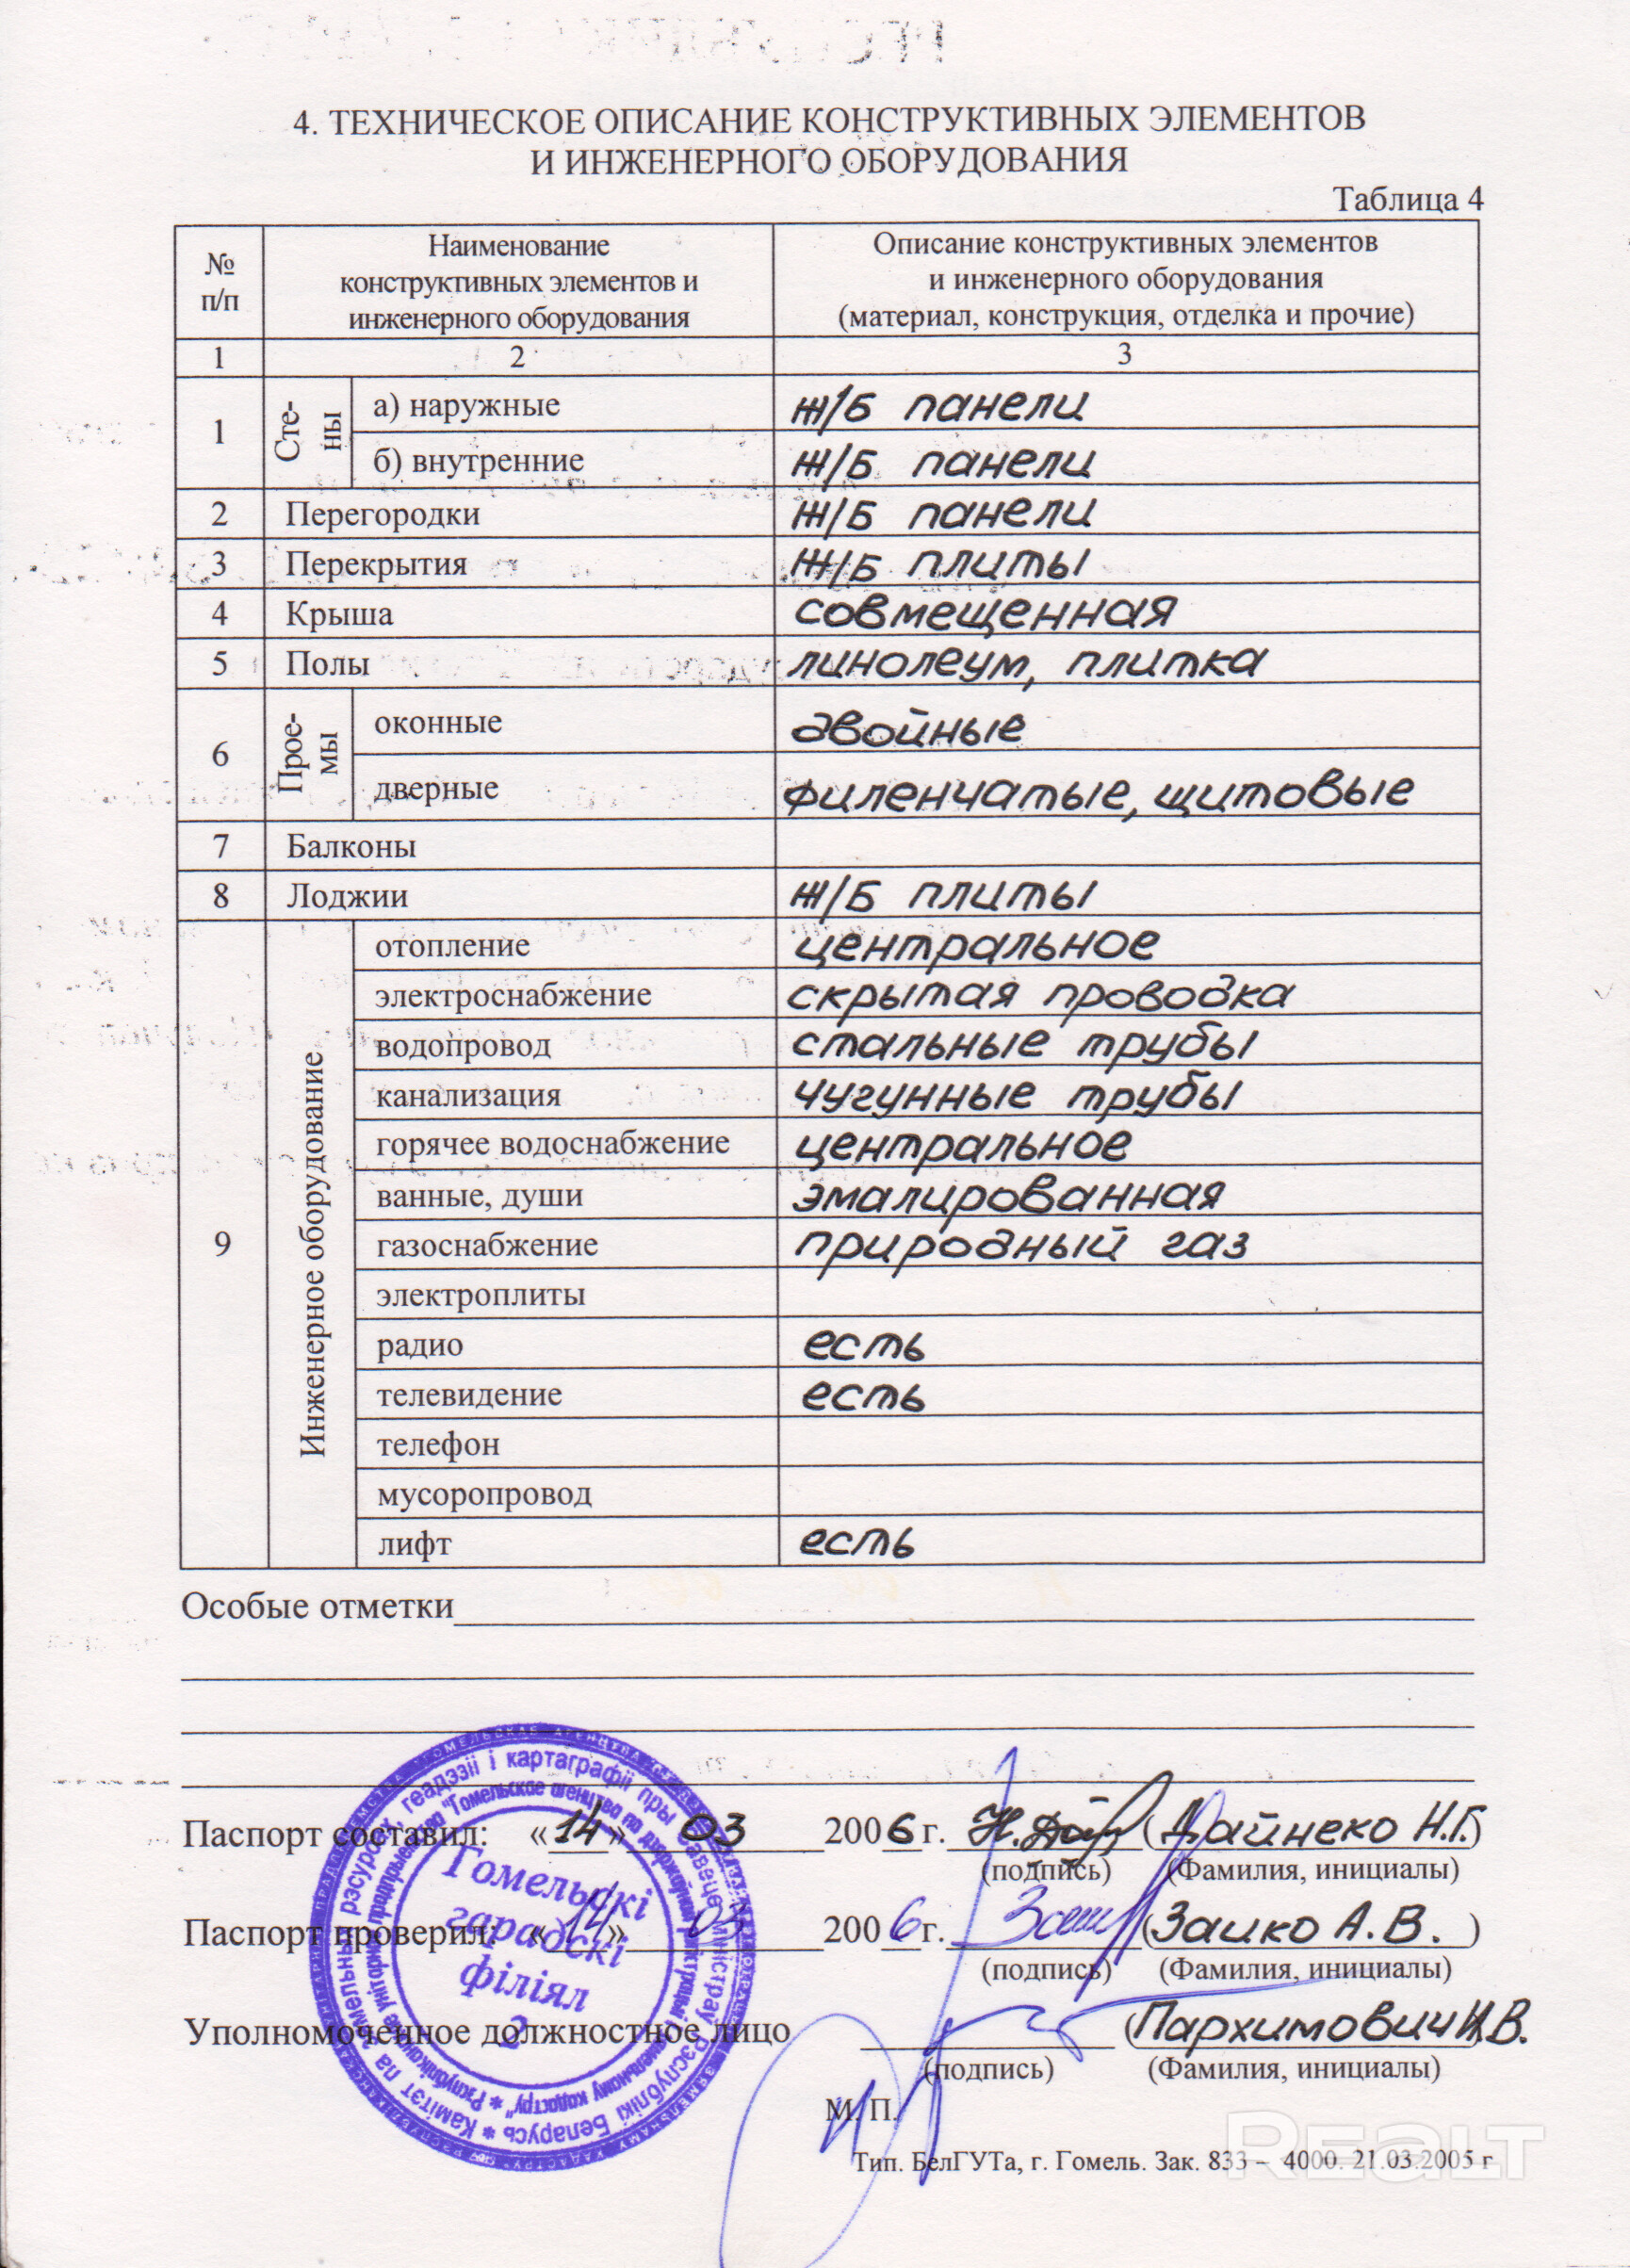 4. ТЕХНИЧЕСКОЕ ОПИСАНИЕ КОНСТРУКТИВНЫХ ЭЛЕМЕНТОВ
И ИНЖЕНЕРНОГО ОБОРУДОВАНИЯ
Таблица 4
№ п/п
Наименование
конструктивных элементов и
инженерного оборудования
Описание конструктивных элементов
и инженерного оборудования
(материал, конструкция, отделка и прочие)
1 2 3
1 Сте-ны а) наружные ж/б панели
б) внутренние ж/б панели
2 Перегородки ж/б панели
3 Перекрытия ж/б плиты
4 Крыша совмещенная
5 Полы линолеум, плитка
6 Прое-мы оконные двойные
дверные филенчатые, щитовые
7 Балконы
8 Лоджии ж/б плиты
9 Инженерное оборудование
отопление центральное
электроснабжение скрытая проводка
водопровод стальные трубы
канализация чугунные трубы
горячее водоснабжение центральное
ванные, души эмалированная
газоснабжение природный газ
электроплиты
радио есть
телевидение есть
телефон
мусоропровод
лифт есть
Особые отметки
Паспорт составил: «14» 03 2006 г. (Дайнеко Н.Г.)
(подпись) (Фамилия, инициалы)
Паспорт проверил: «14» 03 2006 г. (Заико А.В.)
(подпись) (Фамилия, инициалы)
Уполномоченное должностное лицо (Пархимович И.В.
(подпись) (Фамилия, инициалы)
М. П.
Тип. БелГУТа, г. Гомель. Зак. 833 – 4000. 21.03.2005 г
Гомельскі
гарадскі
філіял
2
Realt